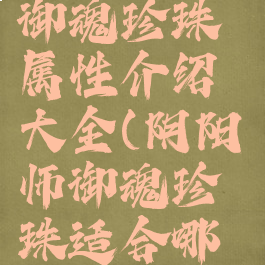 御魂珍珠
属性介绍
大全(阴阳
师御魂珍
珠适合哪